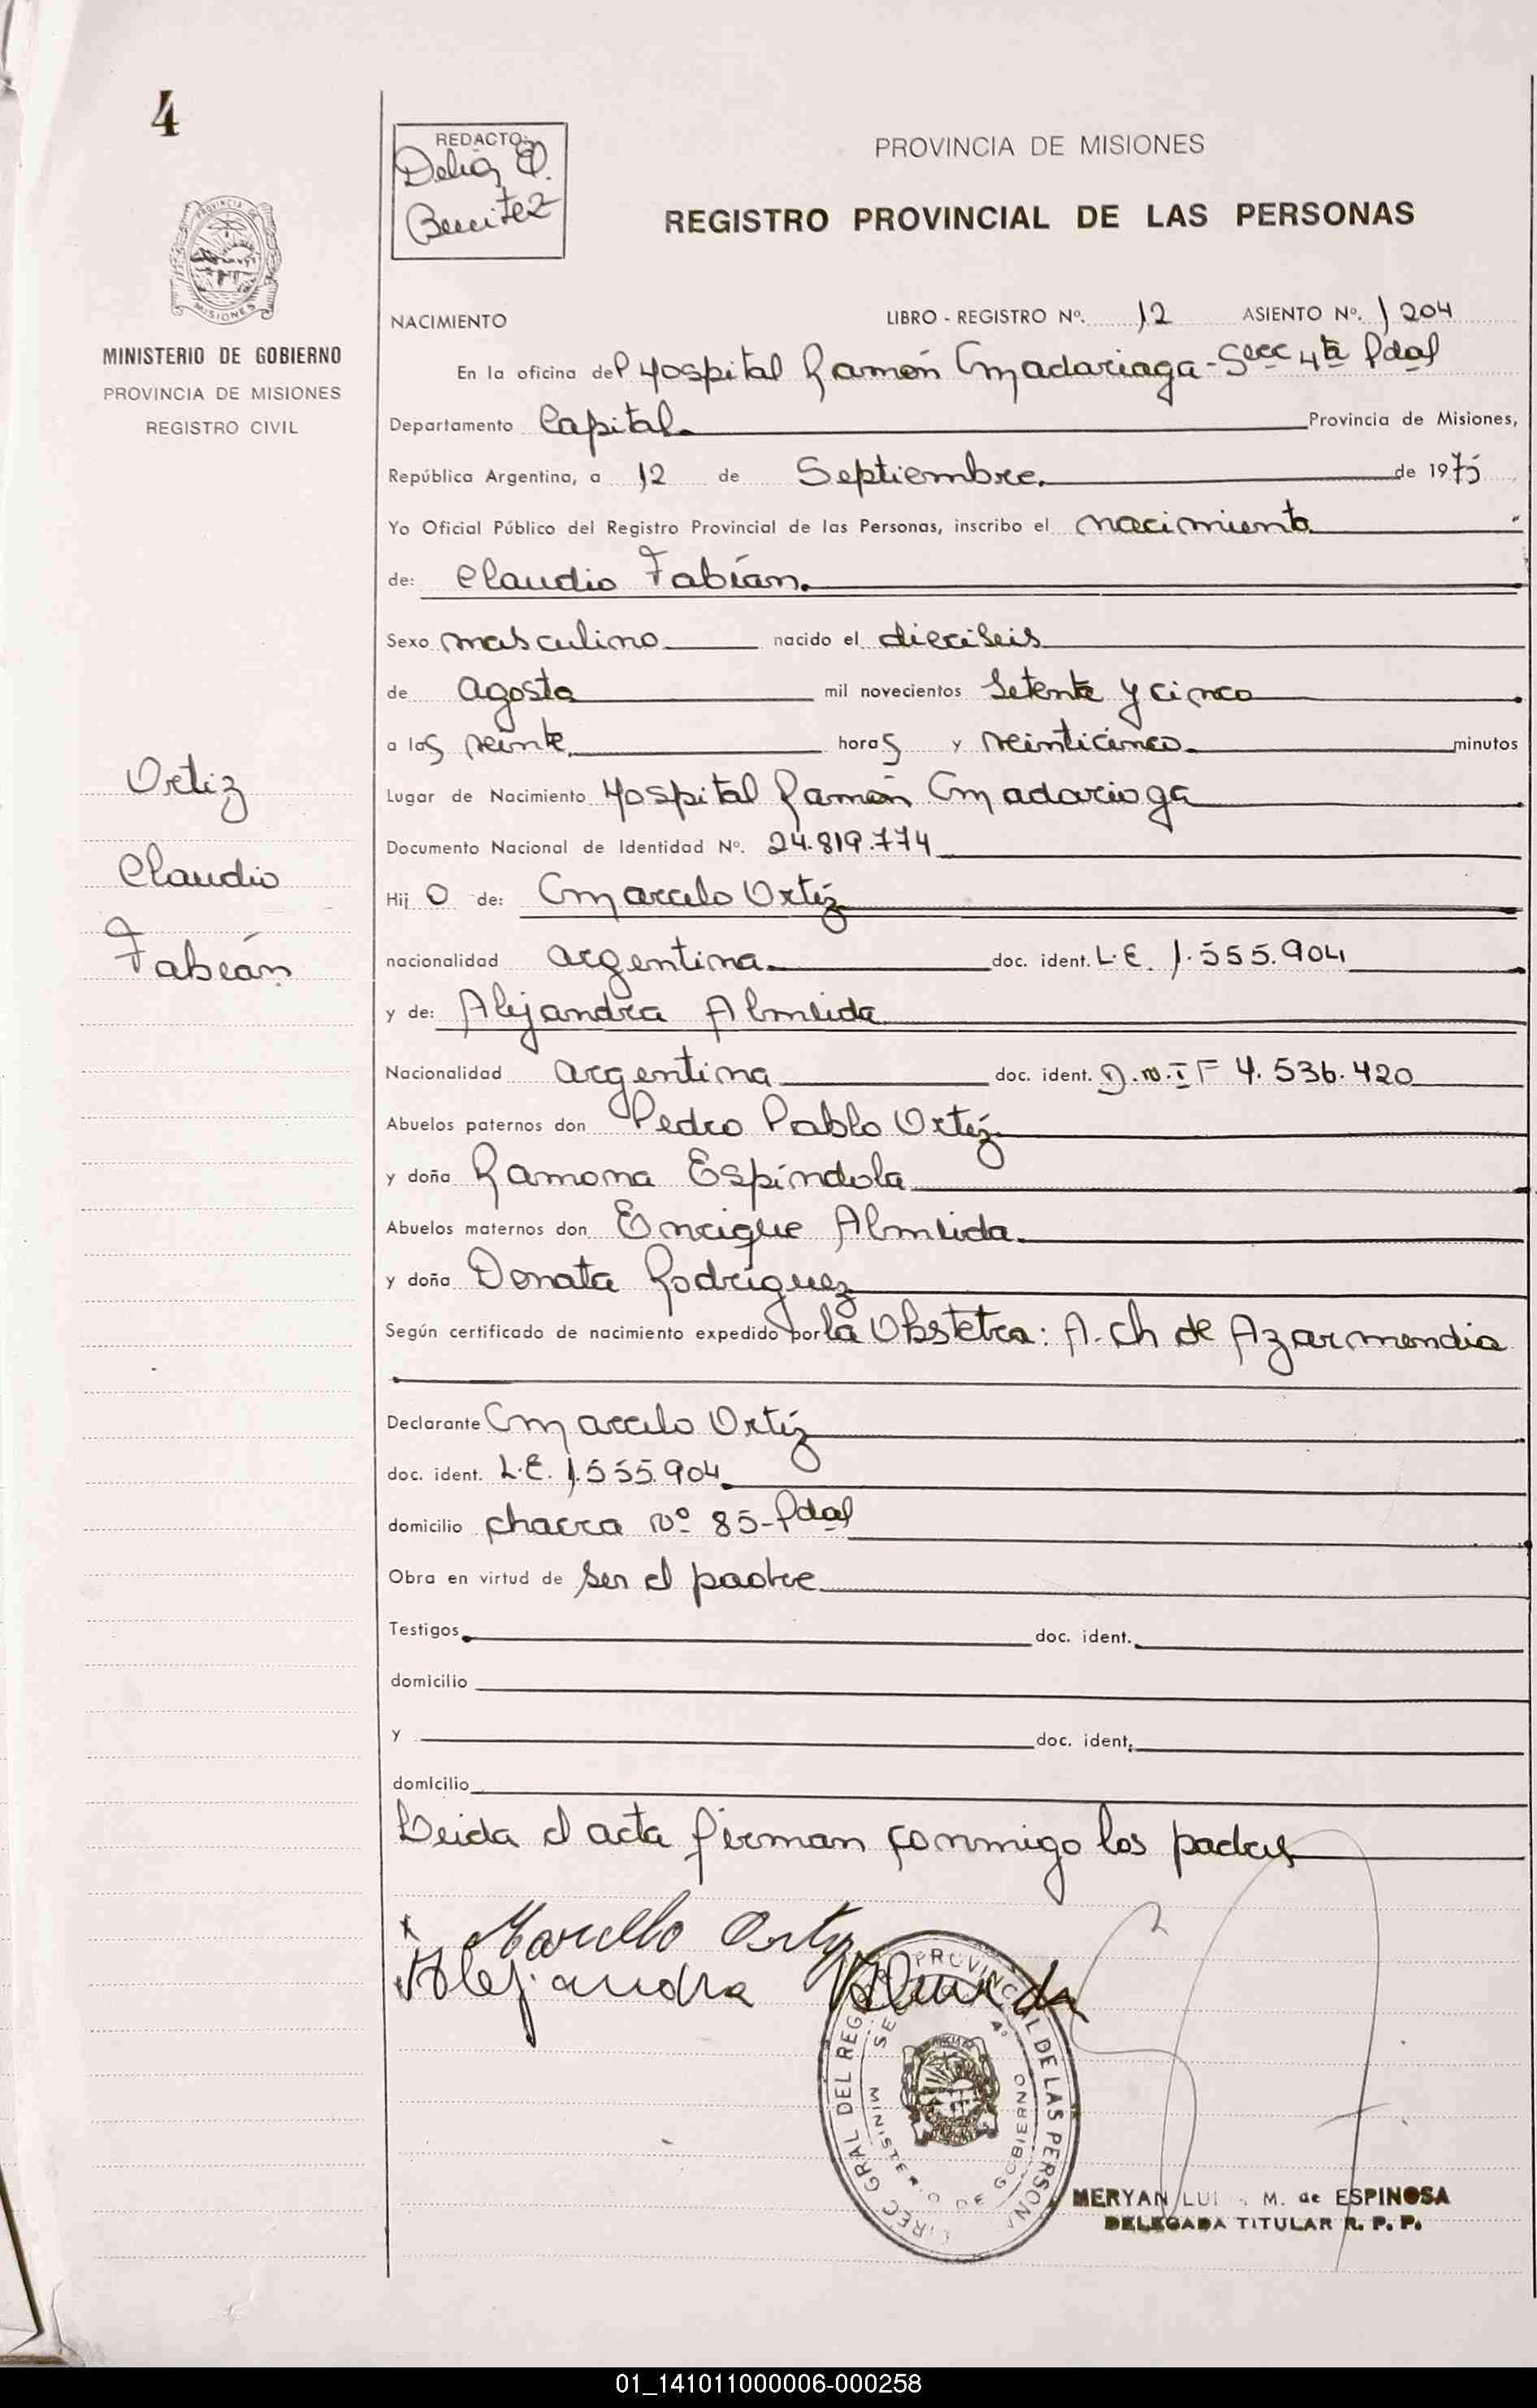 4
REDACTO:
Delia E.
Benitez
PROVINCIA DE MISIONES
REGISTRO PROVINCIAL DE LAS PERSONAS
PROVINCIA DE
MISIONES
MINISTERIO DE GOBIERNO
PROVINCIA DE MISIONES
REGISTRO CIVIL
NACIMIENTO LIBRO - REGISTRO Nº. 12 ASIENTO Nº. 1204
En la oficina del Hospital Ramón Madariaga - Secc 4ta Pdas
Departamento Capital. Provincia de Misiones,
República Argentina, a 12 de Septiembre. de 1975
Yo Oficial Público del Registro Provincial de las Personas, inscribo el nacimiento
de: Claudio Fabián.
Sexo masculino nacido el dieciseis
de agosto mil novecientos setenta y cinco
a las veinte horas y veinticinco minutos
Lugar de Nacimiento Hospital Ramón Madariaga
Documento Nacional de Identidad Nº. 24.819.774
Hij o de: Marcelo Ortíz
nacionalidad argentina. doc. ident. L.E. 1.555.904
y de: Alejandra Almeida
Nacionalidad argentina doc. ident. D.N.I F 4.536.420
Abuelos paternos don Pedro Pablo Ortíz
y doña Ramona Espíndola
Abuelos maternos don Enrique Almeida.
y doña Donata Rodríguez
Según certificado de nacimiento expedido por la Obstetra: A. Ch de Azarmendia
Declarante Marcelo Ortíz
doc. ident. L.E. 1.555.904
domicilio chacra Nº 85 - Pdas
Obra en virtud de ser el padre
Testigos doc. ident.
domicilio
y doc. ident.
domicilio
Leida el acta firman conmigo los padres
Ortiz
Claudio
Fabián
x Marcelo Ortiz
Alejandra Almeida
DIREC GRAL DEL REG PROVINCIAL DE LAS PERSONAS
MINISTERIO DE GOBIERNO
MERYAN M. de ESPINOSA
DELEGADA TITULAR R. P. P.
01_141011000006-000258